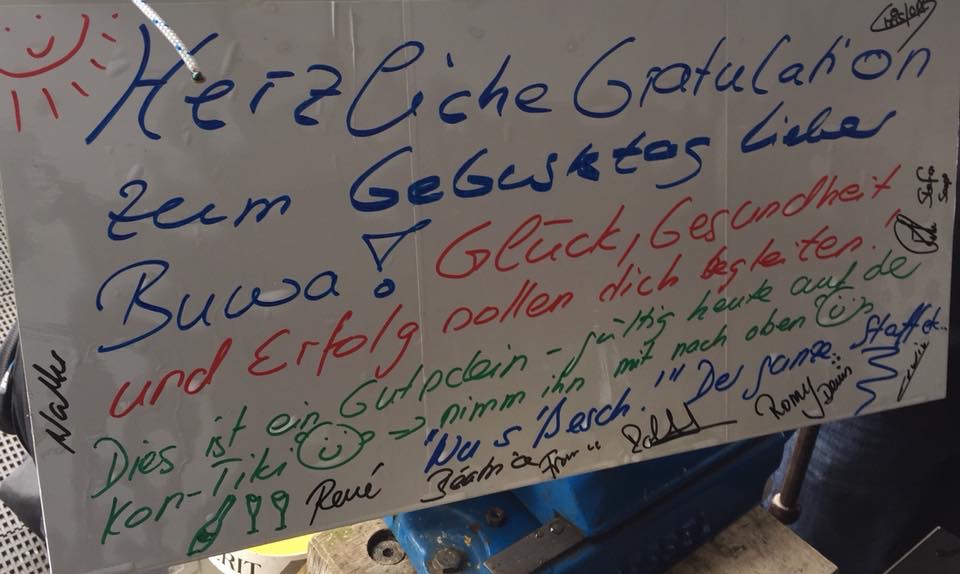 Herzliche Gratulation
zum Geburtstag lieber
Buwa! Glück, Gesundheit
und Erfolg sollen dich begleiten.
Dies ist ein Gutschein - gültig heute auf der
Kon-Tiki → nimm ihn mit nach oben
"Nu s Besch." Der ganze
René
Béatrice
Romy
RIT